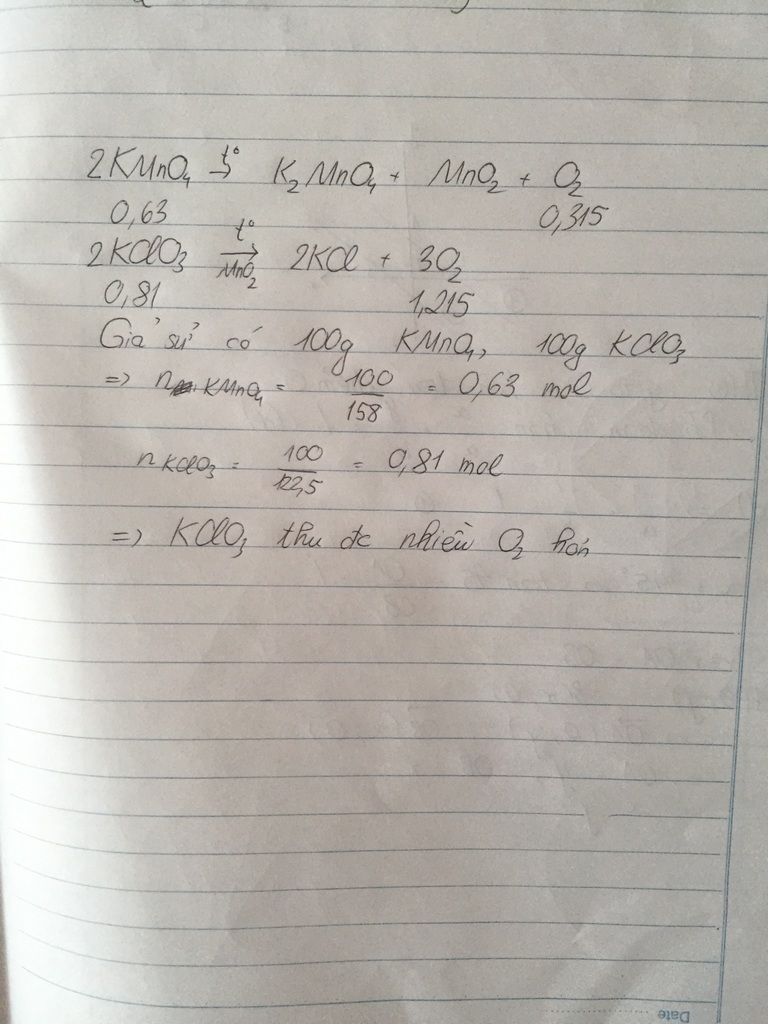 2KMnO₄ →(t°) K₂MnO₄ + MnO₂ + O₂
0,63 0,315
2KClO₃ →(t°, MnO₂) 2KCl + 3O₂
0,81 1,215
Giả sử có 100g KMnO₄, 100g KClO₃
=> n KMnO₄ = 100/158 = 0,63 mol
n KClO₃ = 100/122,5 = 0,81 mol
=> KClO₃ thu đc nhiều O₂ hơn
Date